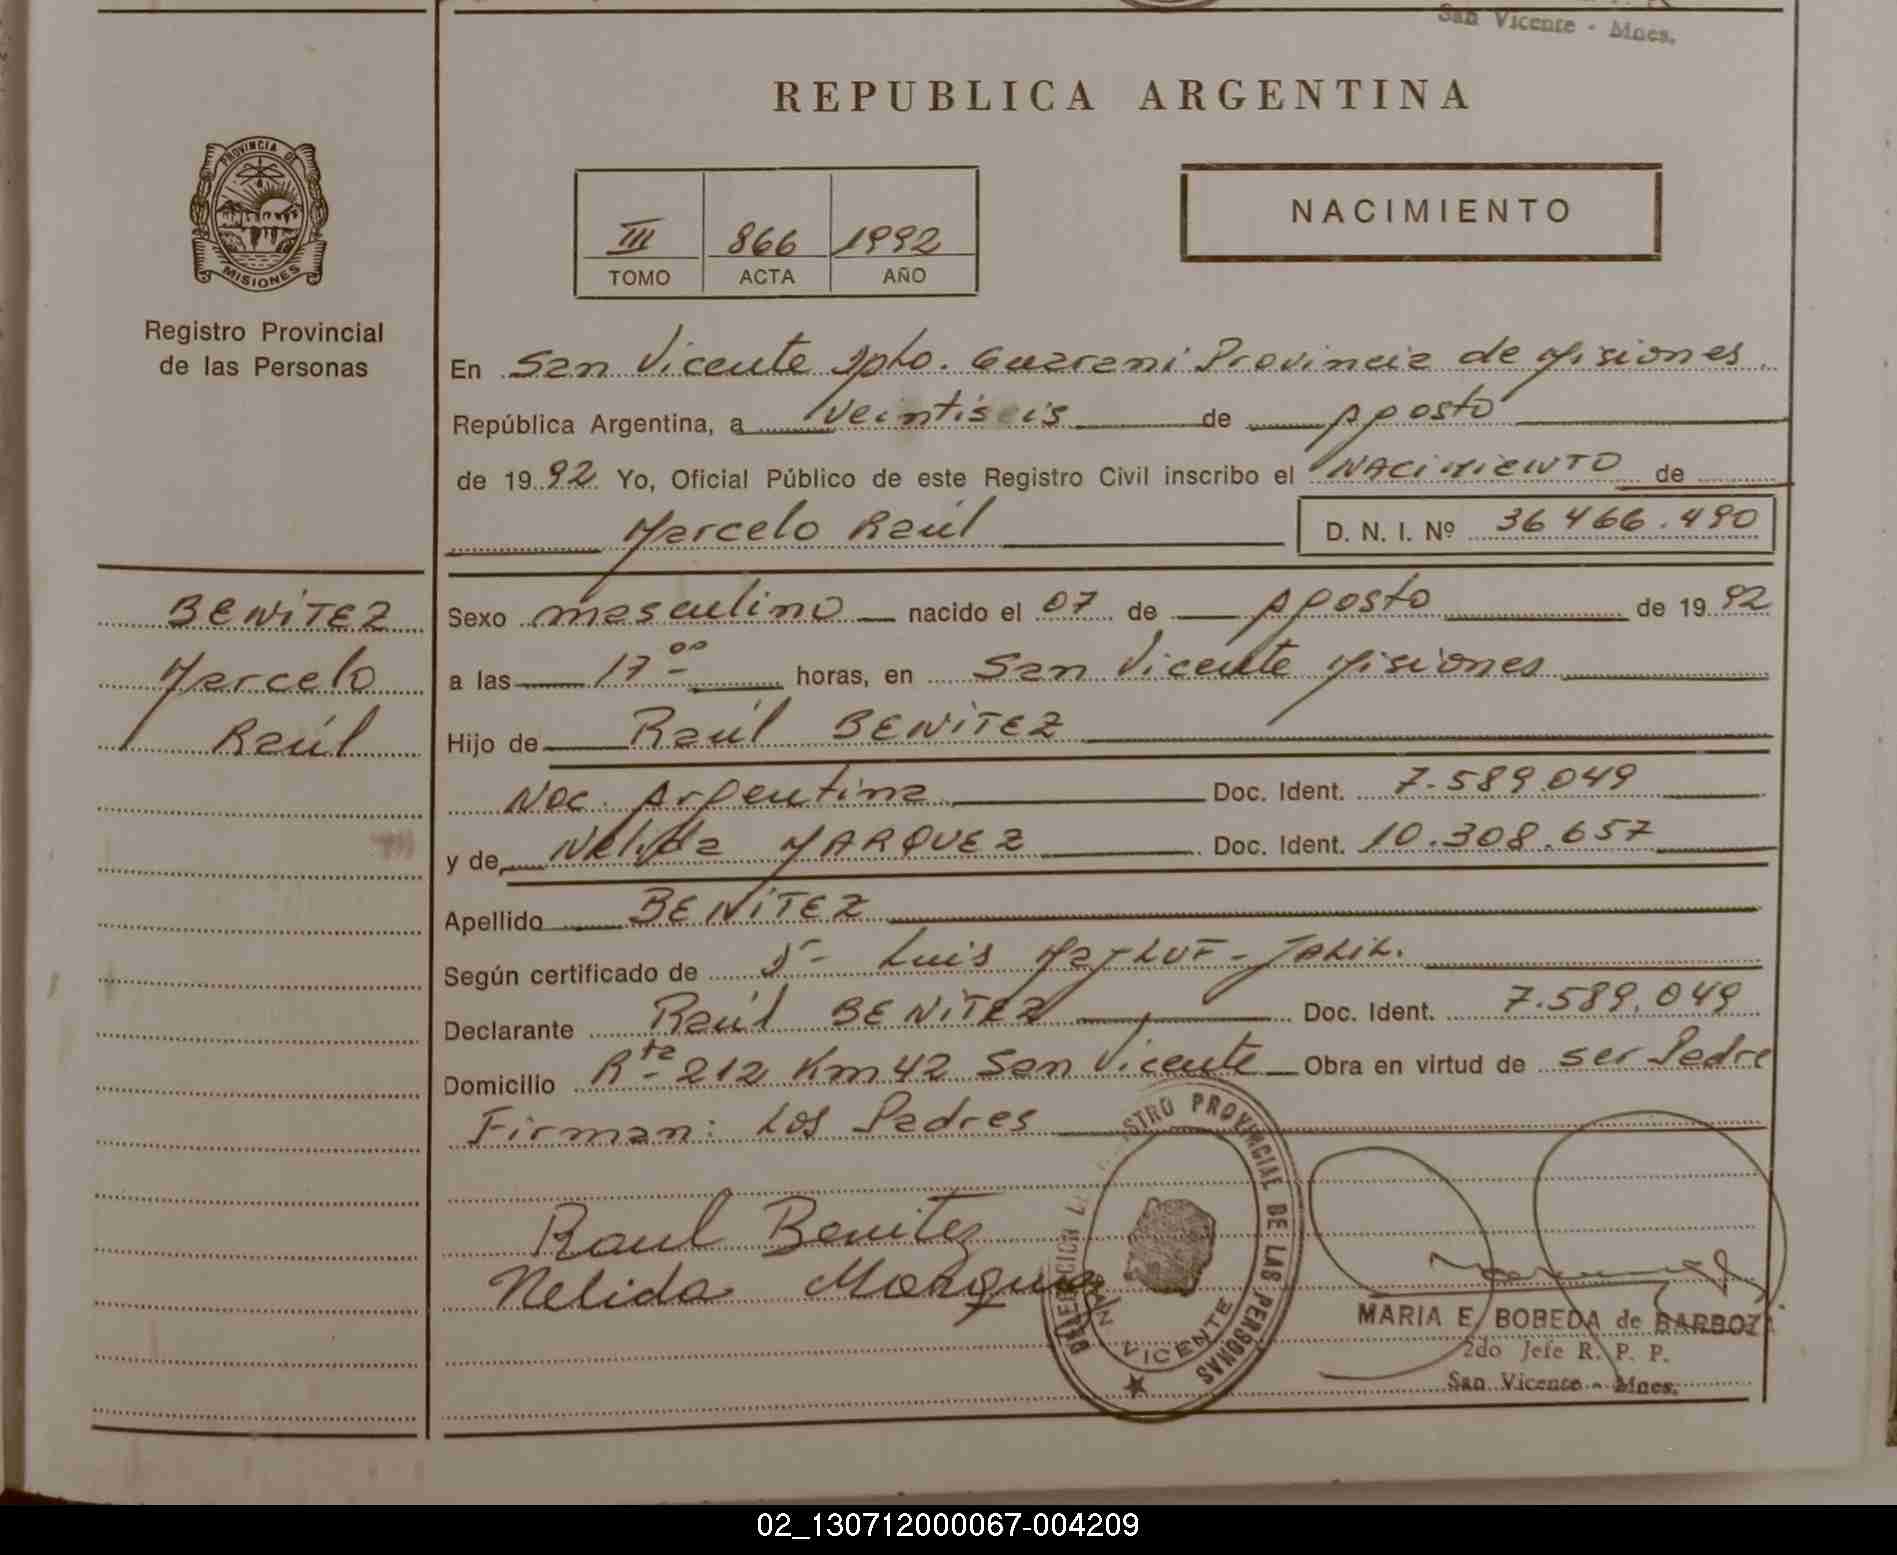 San Vicente - Mnes.
REPUBLICA ARGENTINA
PROVINCIA DE
MISIONES
Registro Provincial
de las Personas
III 866 1992
TOMO ACTA AÑO
NACIMIENTO
En San Vicente Dpto. Guarani Provincia de Misiones.
República Argentina, a veintiseis de Agosto
de 1992 Yo, Oficial Público de este Registro Civil inscribo el NACIMIENTO de
Marcelo Raúl D. N. I. Nº 36466.490
BENITEZ
Marcelo
Raúl
Sexo masculino nacido el 07 de Agosto de 1992
a las 17 00 horas, en San Vicente Misiones
Hijo de Raúl BENITEZ
Nac. Argentina Doc. Ident. 7.589.049
y de Nélida MARQUEZ Doc. Ident. 10.308.657
Apellido BENITEZ
Según certificado de Luis
Declarante Raúl BENITEZ Doc. Ident. 7.589.049
Domicilio Rta 212 Km 42 San Vicente Obra en virtud de ser Padre
Firman: Los Padres
Raul Benitez
Nelida Marquez
DELEGACION DEL REGISTRO PROVINCIAL DE LAS PERSONAS
SAN VICENTE
MARIA E. BOBEDA de BARBOZA
2do Jefe R. P. P.
San Vicente - Mnes.
02_130712000067-004209